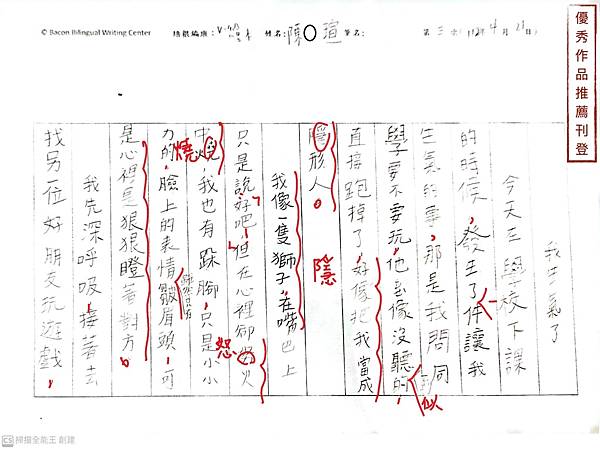 © Bacon Bilingual Writing Center
班級編號:
姓名:陳○瑄
筆名:
第三次(112年4月21日)
優秀作品推薦刊登
我生氣了
今天在學校下課
的時候,發生了一件讓我
生氣的事,那是我問同
學要不要玩,他像沒聽的,
似
直接跑掉了,好像把我當成
隱形人。
隱
我像一隻獅子,在嘴巴上
只是說好吧,但在心裡卻怒火
怒
中燒,我也有跺腳,只是小小
燒
力的,臉上的表情皺眉頭,可
是心裡是狠狠瞪著對方。
我先深呼吸,接著去
找另一位好朋友玩遊戲,
CS 掃描全能王 創建